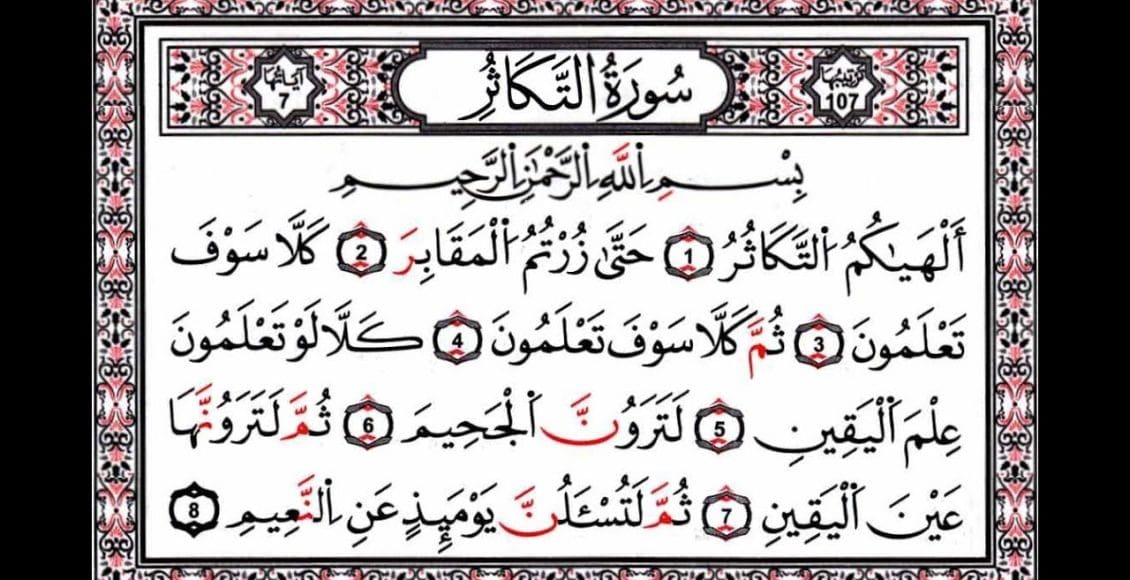 ترتيبها 107 سُورَةُ التَّكَاثُرِ آيَاتُهَا 7
بِسْمِ اِللَّهِ اِلرَّحْمَٰنِ اِلرَّحِيمِ
أَلْهَيٰكُمُ اُلتَّكَاثُرُ 1 حَتَّىٰ زُرْتُمُ اُلْمَقَابِرَ 2 كَلَّا سَوْفَ
تَعْلَمُونَ 3 ثُمَّ كَلَّا سَوْفَ تَعْلَمُونَ 4 كَلَّا لَوْ تَعْلَمُونَ
عِلْمَ اَلْيَقِينِ 5 لَتَرَوُنَّ اَلْجَحِيمَ 6 ثُمَّ لَتَرَوُنَّهَا
عَيْنَ اَلْيَقِينِ 7 ثُمَّ لَتُسْـَٔلُنَّ يَوْمَئِذٍ عَنِ اِلنَّعِيمِ 8